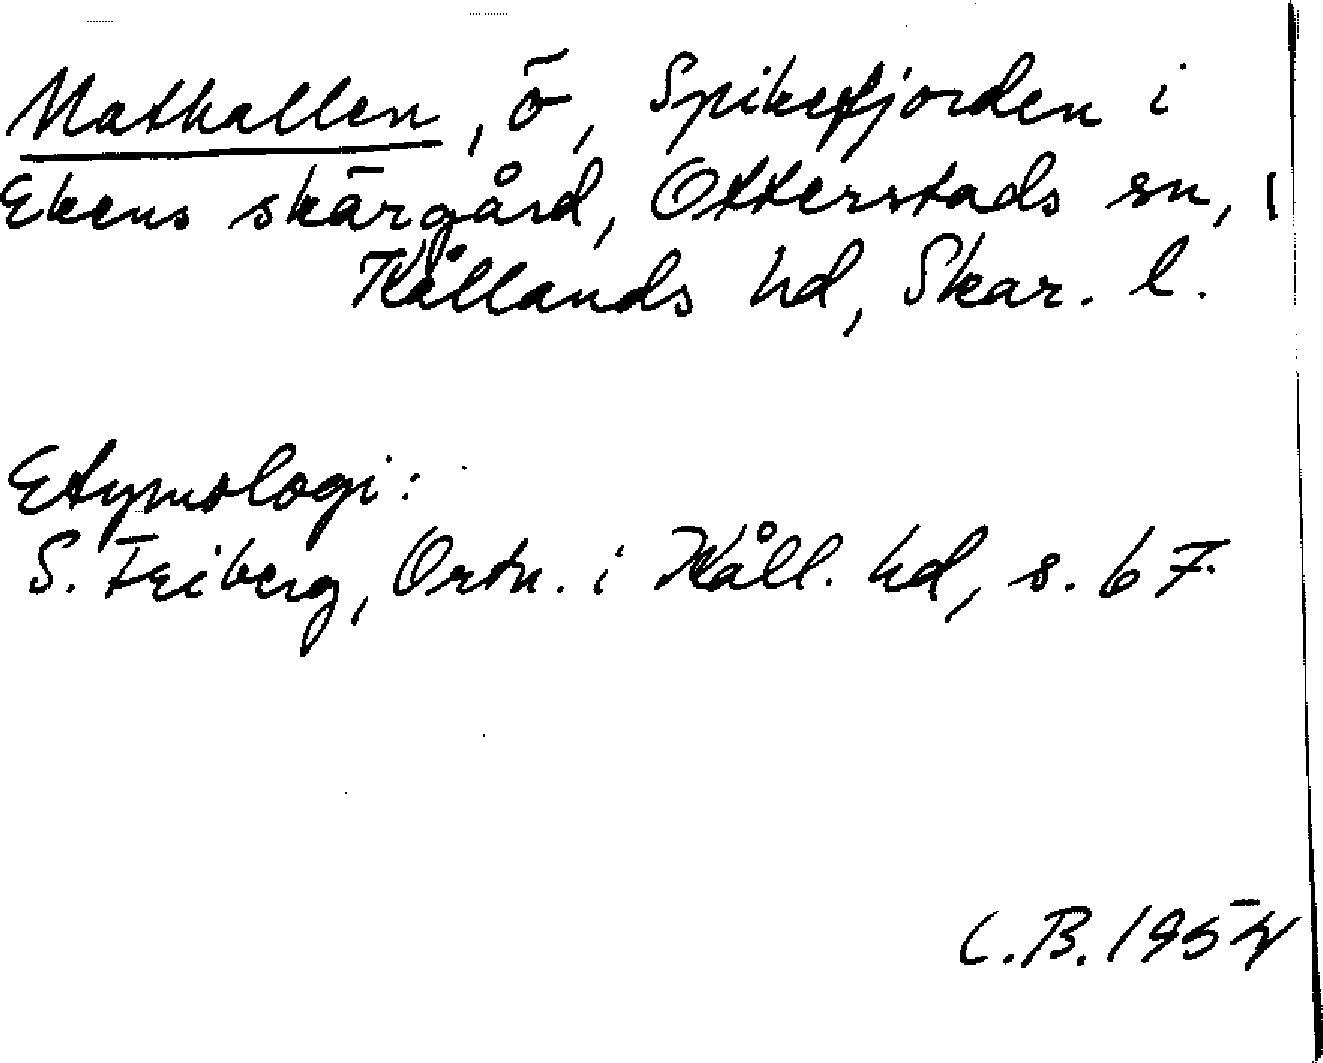 Mathallen, ö, Spikefjorden i
Ekens skärgård, Otterstads sn,
Kållands hd, Skar. l.
Etymologi:
S. Friberg, Ortn. i Kåll. hd, s. 67.
C.B. 1954